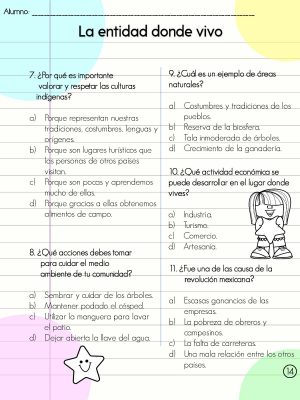 Alumno:
La entidad donde vivo
7. ¿Por qué es importante
valorar y respetar las culturas
indígenas?
a) Porque representan nuestras
tradiciones, costumbres, lenguas y
orígenes.
b) Porque son lugares turísticos que
las personas de otros países
visitan.
c) Porque son pocas y aprendemos
mucho de ellas.
d) Porque gracias a ellas obtenemos
alimentos de campo.
8. ¿Qué acciones debes tomar
para cuidar el medio
ambiente de tu comunidad?
a) Sembrar y cuidar de los árboles.
b) Mantener podado el césped.
c) Utilizar la manguera para lavar
el patio.
d) Dejar abierta la llave del agua.
9. ¿Cuál es un ejemplo de áreas
naturales?
a) Costumbres y tradiciones de los
pueblos.
b) Reserva de la biosfera.
c) Tala inmoderada de árboles.
d) Crecimiento de la ganadería.
10. ¿Qué actividad económica se
puede desarrollar en el lugar donde
vives?
a) Industria.
b) Turismo.
c) Comercio.
d) Artesanía.
11. ¿Fue una de las causa de la
revolución mexicana?
a) Escasas ganancias de las
empresas.
b) La pobreza de obreros y
campesinos.
c) La falta de carreteras.
d) Una mala relación entre los otros
países.
14